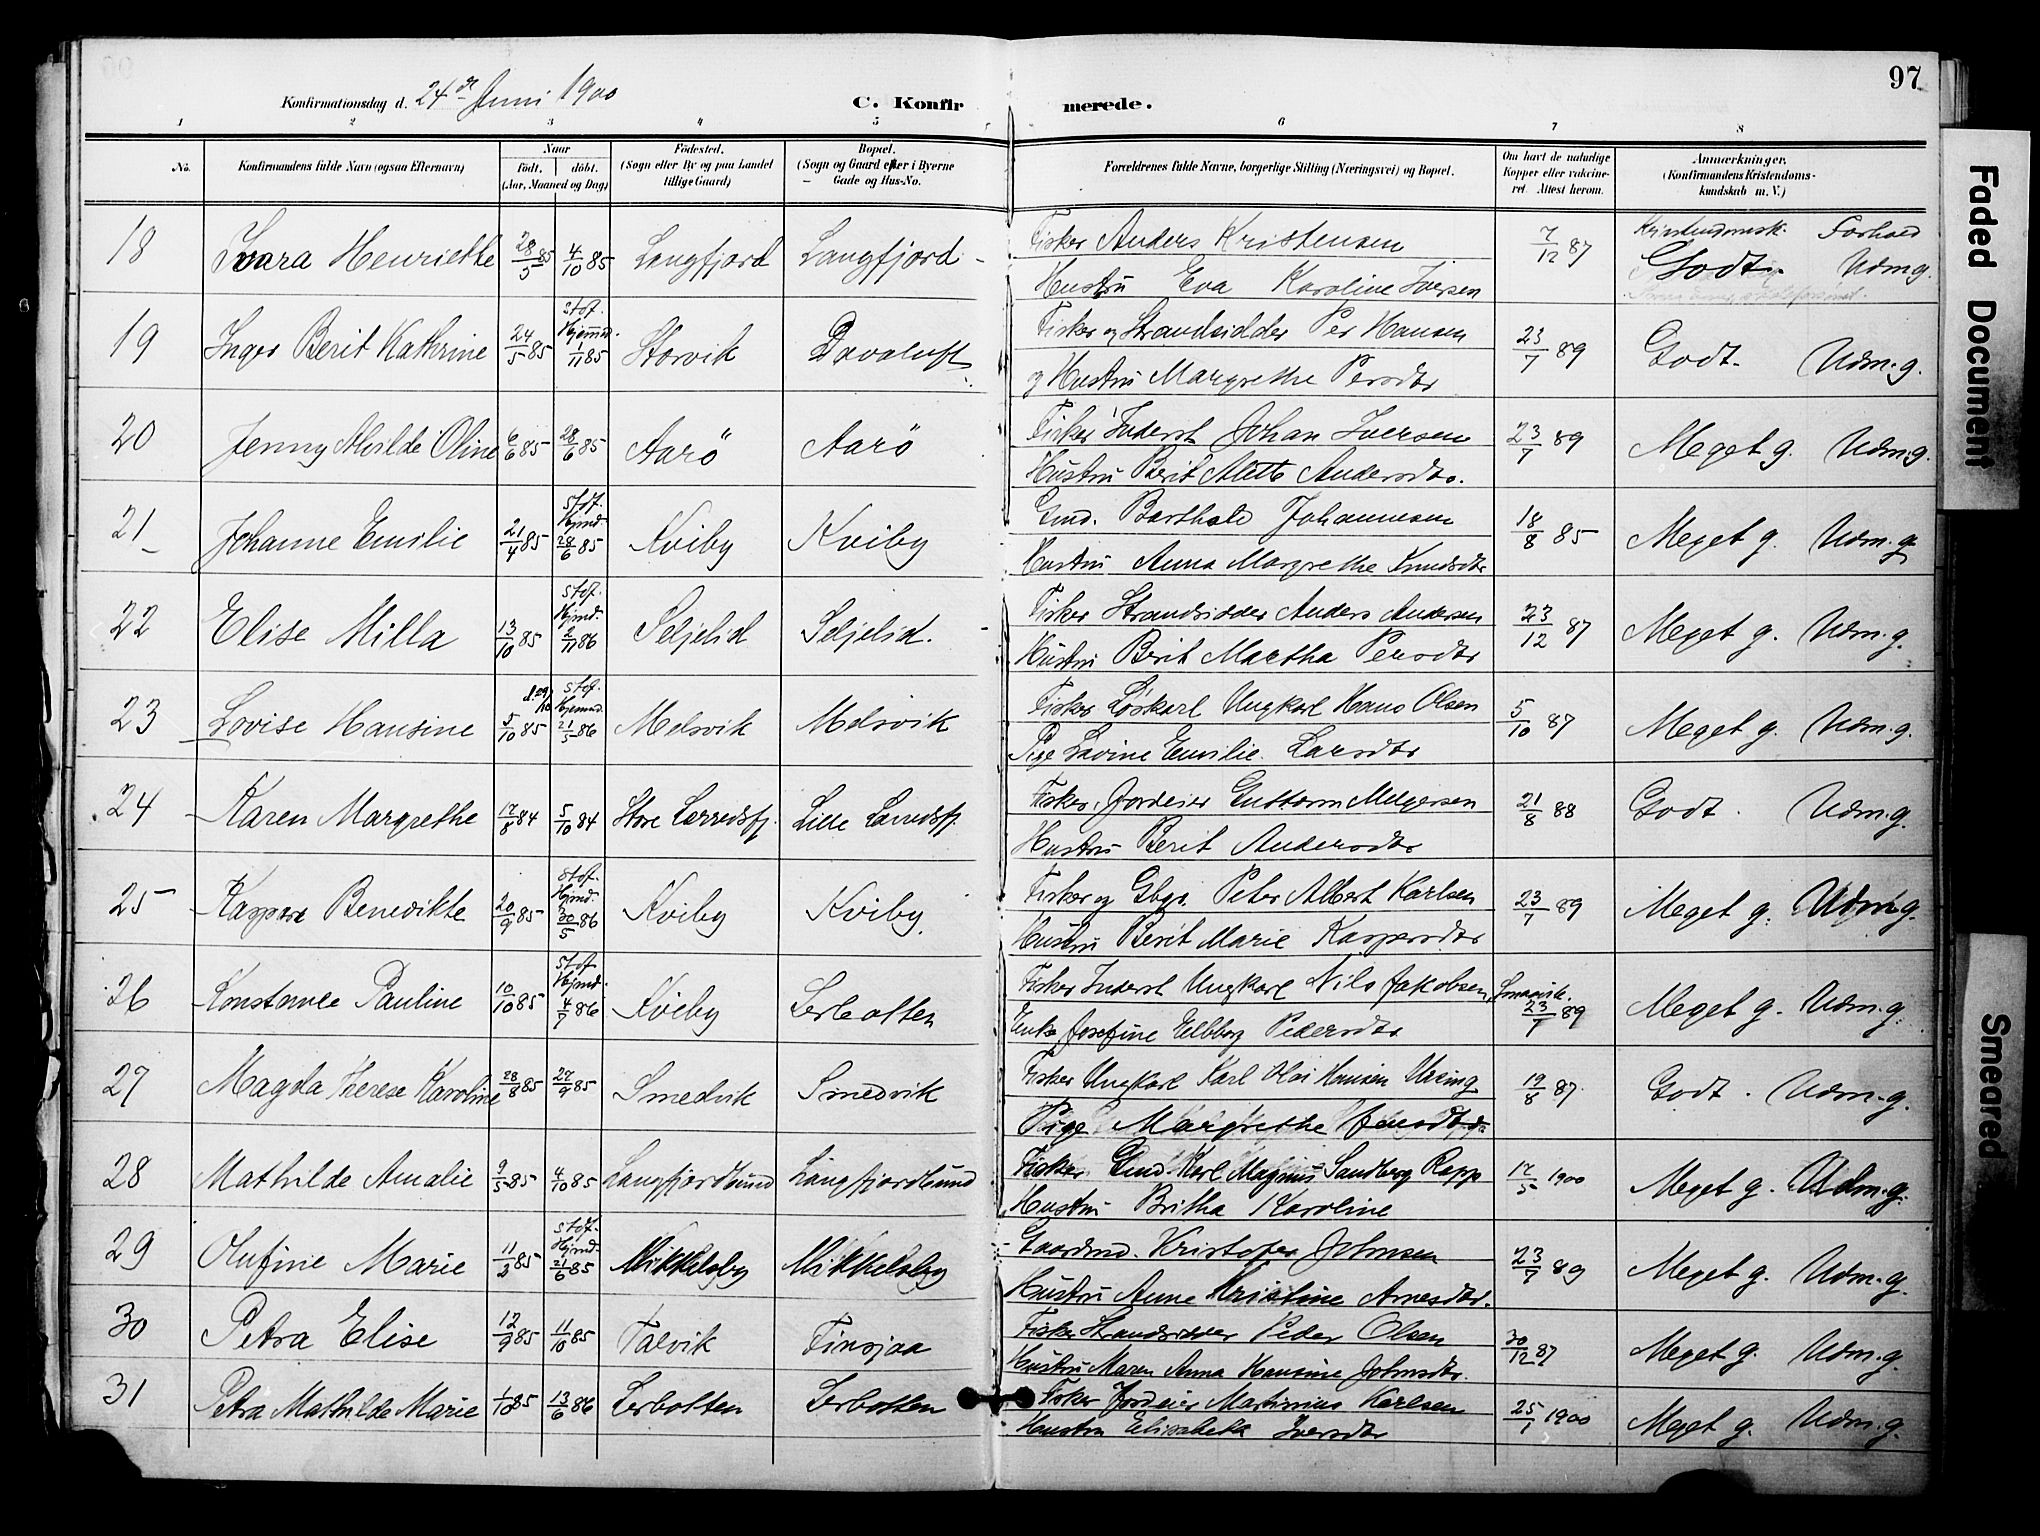 97
Konfirmationsdag d. 24de Juni 1900
C. Konfirmerede.
1 2 3 4 5 6 7 8
No. Konfirmandens fulde Navn (ogsaa Efternavn) Naar födt. döbt. (Aar, Maaned og Dag) Födested. (Sogn eller By og paa Landet tillige Gaard) Bopæl. (Sogn og Gaard eller i Byerne Gade og Hus-No. Forældrenes fulde Navne, borgerlige Stilling (Næringsvei) og Bopæl. Om havt de naturlige Kopper eller vakcineret. Attest herom. Anmærkninger. (Konfirmandens Kristendomskundskab m. V.)
Kristendomsk. Forhold
18 Henriette 28/5 85 4/10 85 Langfjord Langfjord Fisker Anders Kristensen 7/12 87 Godt. Udm.g.
Hustru Eva Karoline Iversen
19 Inger Berit Kathrine 24/5 85 stof. Hjemmed. 1/11 85 Storvik Davaluft Fisker og Strandsidder Per Hansen 23/7 89 Godt. Udm.g.
og Hustru Margrethe Persdtr
20 Jenny Alvilde Oline 6/6 85 28/6 85 Aarö Aarö Fisker Inderst Johan Iversen 23/7 89 Meget g. Udm.g.
Hustru Berit Andersdtr.
21 Johanne Emilie 21/4 85 stdf. Hjmd. 28/6 85 Kviby Kviby Gmd. Barthold Johannesen 18/8 85 Meget g. Udm.g.
Hustru Anna Margrethe Knudsdtr
22 Elise Milla 13/10 85 stof. Hjmd. 2/11 86 Seljelid Seljelid. Fisker Strandsidder Anders Andersen 23/12 87 Meget g. Udm.g.
Hustru Berit Martha Persdtr
23 Lovise Hansine 5/10 85 stof. Hjemmed. 21/5 86 Melsvik Melsvik Fisker Löskarl Ungkarl Hans Olsen 5/10 87 Meget g. Udm.g.
Pige Lavine Emilie Larsdtr
24 Karen Margrethe 17/8 84 5/10 84 Store Lerredsfj. Lille Lerredsfj. Fisker, Jordeier Guttorm 21/8 88 Godt. Udm.g.
Hustru Berit Andersdtr
25 Benedikte 20/9 85 stof. Hjmd. 30/5 86 Kviby Kviby. Fisker og Gbgr. Peter Albert Karlsen 23/7 89 Meget g. Udm.g.
Hustru Berit Marie Kaspersdtr
26 Konstance Pauline 10/10 85 stof Hjmd. 4/7 86 Kviby Lerbotten Fisker Inderst Ungkarl Nils Jakobsen, 23/7 89 Meget g. Udm.g.
Enke Josefine Ellberg Pedersdtr
27 Magda Therese Karoline 28/8 85 27/9 85 Smedvik Smedvik Fisker Ungkarl Karl Hansen 19/8 87 Godt. Udm.g.
Pige Margrethe
28 Mathilde Amalie 9/5 85 4/10 85 Langfjordbund Langfjordbund Fisker Gmd. Karl Magnus Sandberg Rapp 17/5 1900 Meget g. Udm.g.
Hustru Britha Karoline
29 Olufine Marie 11/3 85 stof. Hjmd. 21/6 85 Mikkelsby Mikkelsby Gaardmd. Kristofer Johnsen 23/7 89 Meget g. Udm.g.
Hustru Anne Kristine Arnesdtr.
30 Petra Elise 12/9 85 11/10 85 Talvik Finsjaa Fisker Strandsidder Peder Olsen 30/12 87 Meget g. Udm.g.
Hustru Maren Anna Hansine Johnsdtr.
31 Petra Mathilde Marie 1/10 85 13/6 86 Lerbotten Lerbotten Fisker Jordeier Martinius Karlsen 25/1 1900 Meget g. Udm.g.
Hustru Elisabeth Iversdtr
Faded Document
Smeared